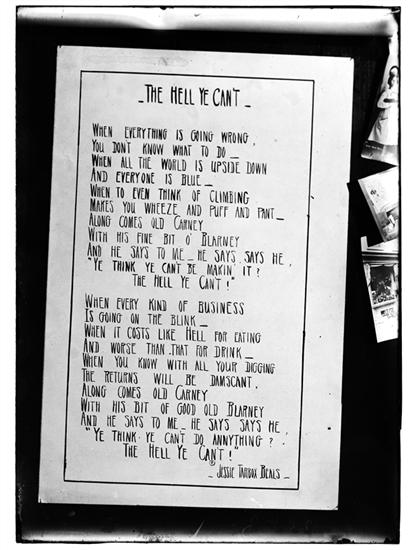 _ THE HELL YE CAN'T _
WHEN EVERYTHING IS GOING WRONG,
YOU DON'T KNOW WHAT TO DO _
WHEN ALL THE WORLD IS UPSIDE DOWN
AND EVERYONE IS BLUE _
WHEN TO EVEN THINK OF CLIMBING
MAKES YOU WHEEZE AND PUFF AND PANT _
ALONG COMES OLD CARNEY
WITH HIS FINE BIT O' BLARNEY
AND HE SAYS TO ME _ HE SAYS, SAYS HE,
"YE THINK YE CAN'T BE MAKIN' IT?
THE HELL YE CAN'T!"
WHEN EVERY KIND OF BUSINESS
IS GOING ON THE BLINK _
WHEN IT COSTS LIKE HELL FOR EATING
AND WORSE THAN THAT FOR DRINK _
WHEN YOU KNOW WITH ALL YOUR DIGGING
THE RETURNS WILL BE DAMSCANT,
ALONG COMES OLD CARNEY
WITH HIS BIT OF GOOD OLD BLARNEY
AND HE SAYS TO ME _ HE SAYS SAYS HE,
"YE THINK YE CAN'T DO ANNYTHING?
THE HELL YE CAN'T!"
© _ JESSIE TARBOX BEALS _